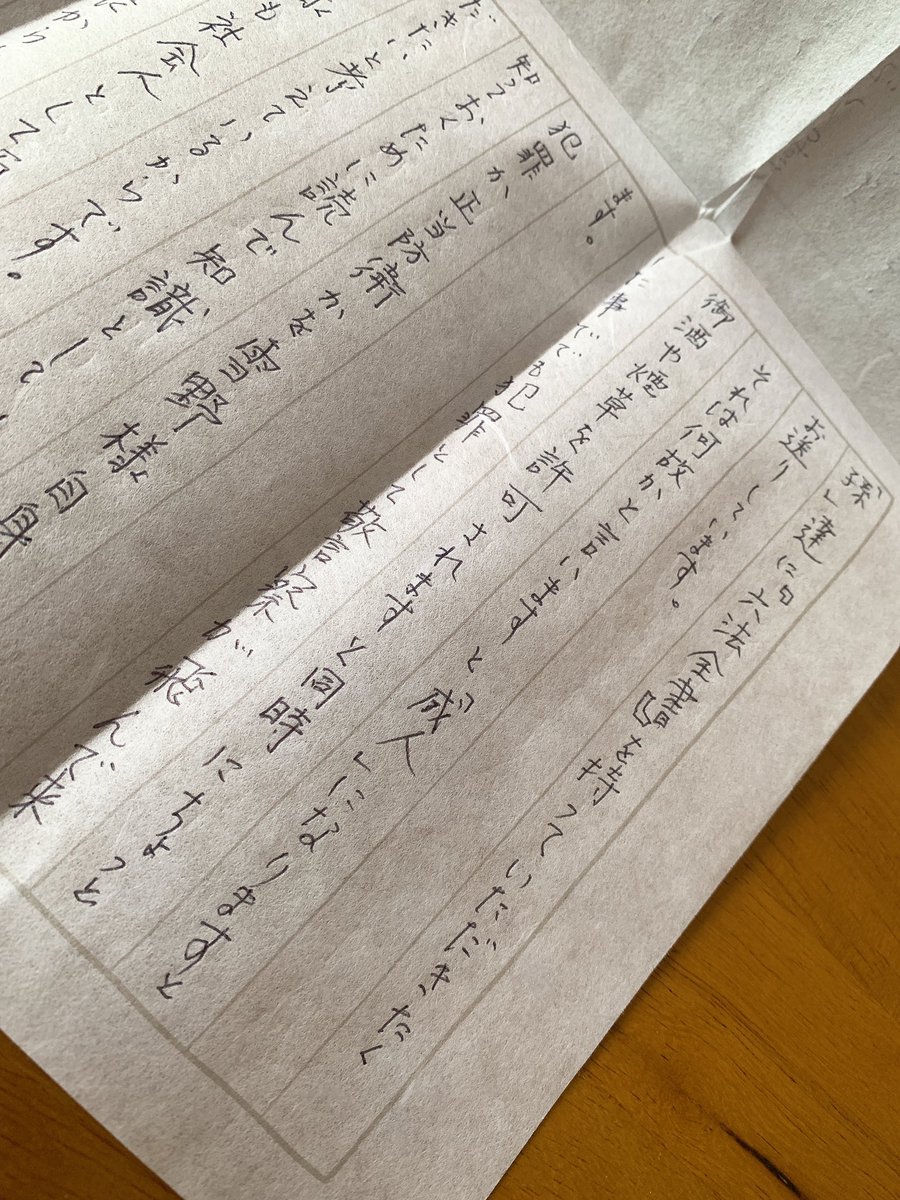 孫」達に白六法全書『』を持っていただきたく
お送りしています。
それは何故かと言いますと「成人」になりますと
御酒や煙草を許可されますと同時にちょっと
た事でも犯罪として警察が飛んで来
ます。
犯罪か正当防衛かを雪野様自身
知っておくために読んで知識として
だきたいと考えているからです。
も社会人として
から